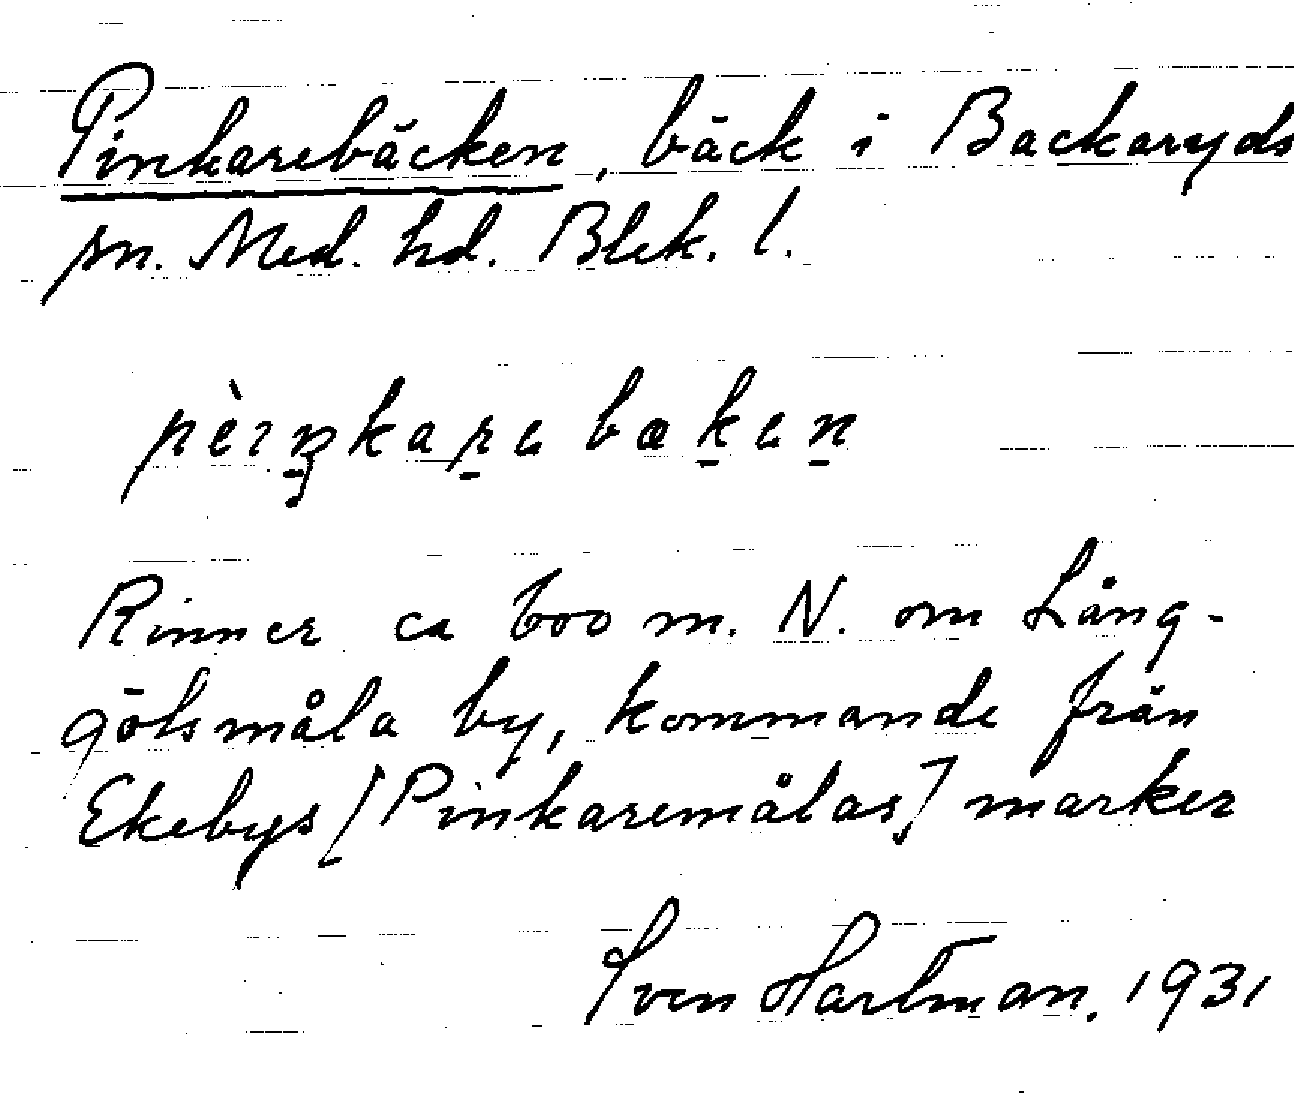 Pinkarebäcken, bäck i Backaryds
sn. Med. hd. Blek. l.
pèıŋkarɐ bækɐn
Rinner ca 600 m. N. om Lång-
gölsmåla by, kommande från
Ekebys [Pinkaremålas] marker
Sven Hartman. 1931